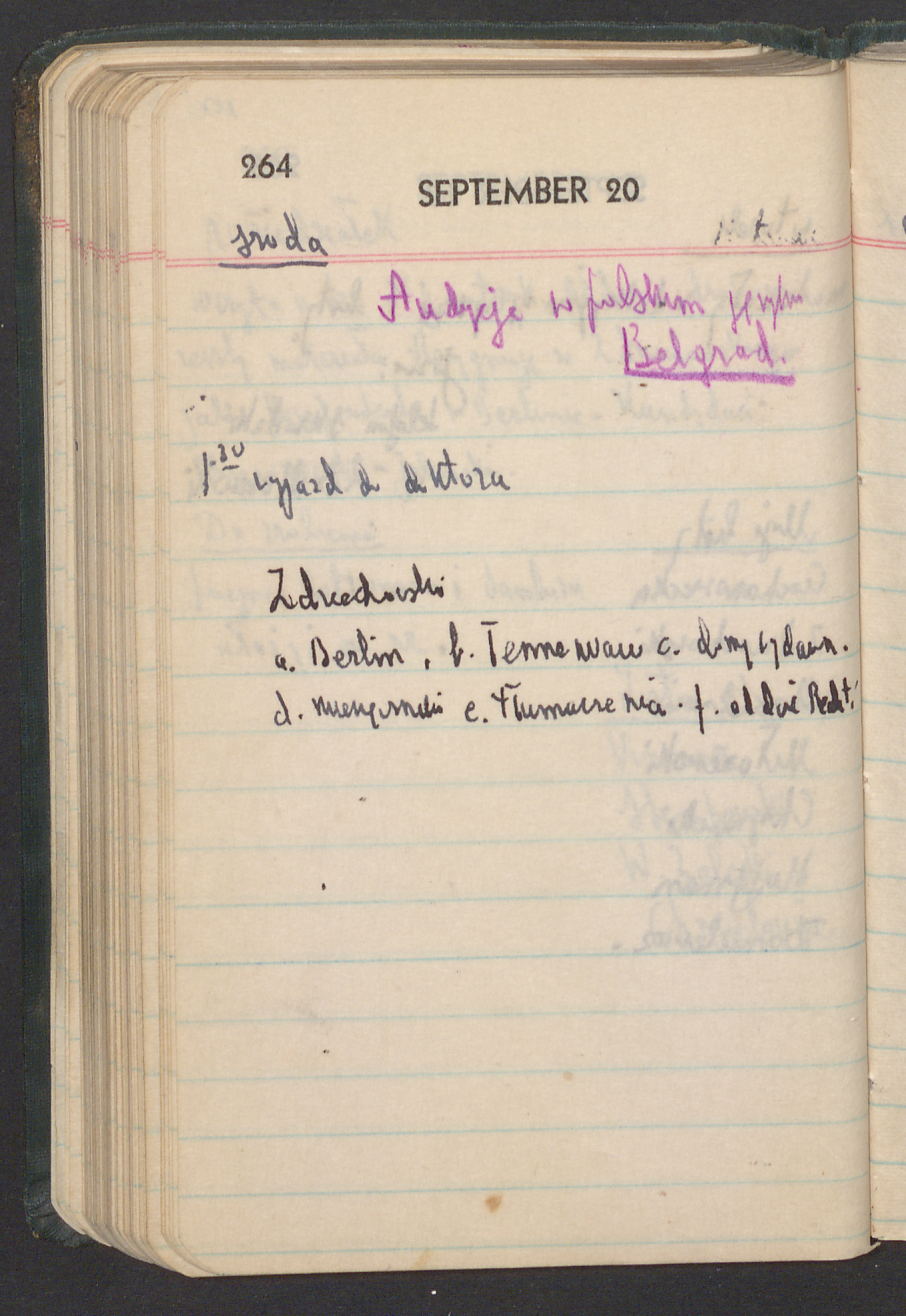 264
SEPTEMBER 20
środa
Audycja w polskim języku
Belgrad.
1.30 wyjazd do doktora
Zdziechowski
a. Berlin, b. Tennenbaum c. domy wydawn.
d. c. Tłumaczenia. f. oddać